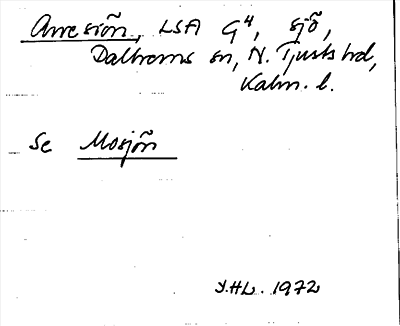 Arresjön, LSA G4, sjö,
Dalhems sn, N. Tjusts hd,
Kalm. l.
Se Mosjön
Y.HL. 1972